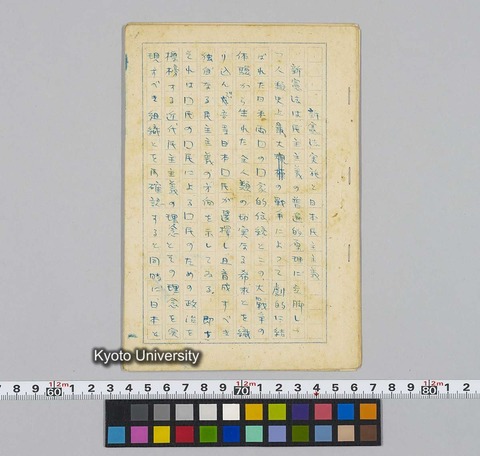 新憲法実施と日本民主主義
新憲法は民主主義の普遍的原理に立脚し、
人類史上最大の戦争によって劇的に結
ばれた日米両国の国家的伝統とこの大戦争の
体験から生れた全人類の切実なる希求とを織
り込んで吾等日本国民が選択し且育成すべき
独自なる民主主義の方向を示してゐる。即ち
それは国民の国民による国民のための政治を
標榜する近代民主主義の理念とその理念を実
現すべき組織とを再確認すると同時に日本と
Kyoto University
7 8 9 60 1 2m 1 2 3 4 5 6 7 8 9 70 1 2m 1 2 3 4 5 6 7 8 9 80 1 2m 1 2